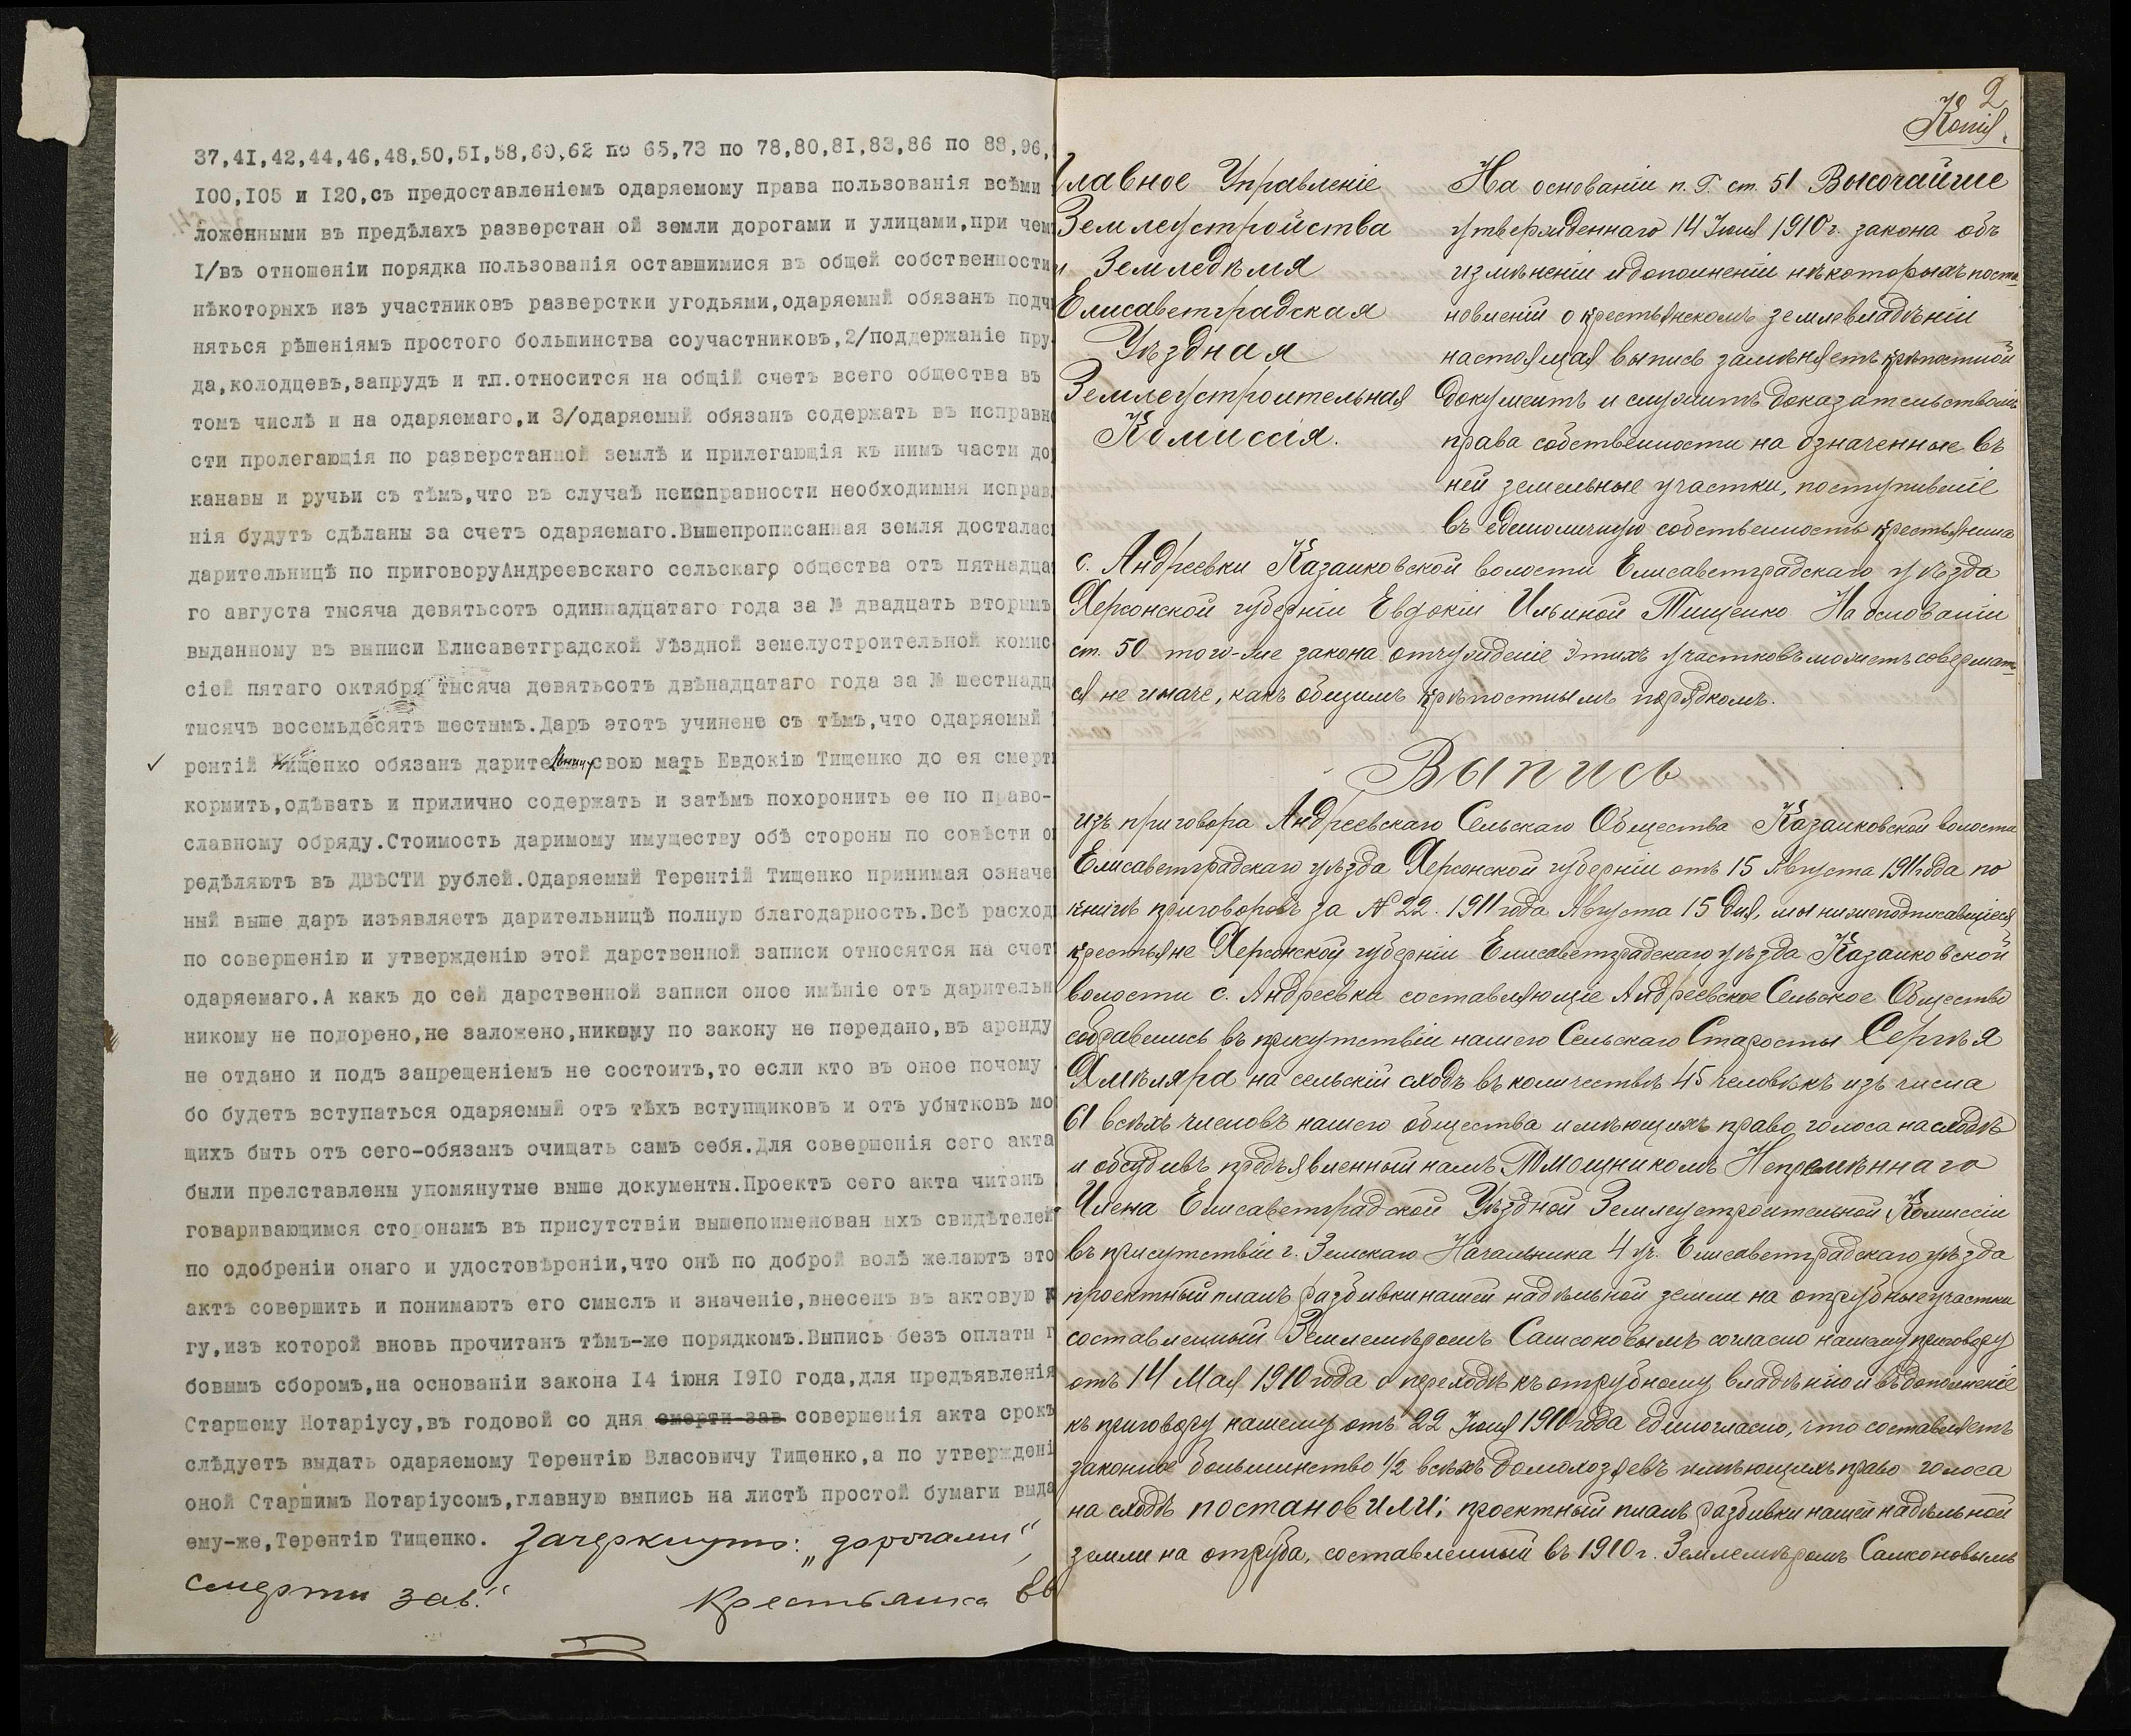 37,41,42,44,46,48,50,51,58,60,62 по 65,73 по 78,80,81,83,86 по 88,96,
100,105 и 120,съ предоставленіемъ одаряемому права пользованія всѣми
ложенными въ предѣлахъ разверстан ой земли дорогами и улицами,при чем
1/въ отношеніи порядка пользованія оставшимися въ общей собственности
нѣкоторыхъ изъ участниковъ разверстки угодьями,одаряемый обязанъ подчи
няться рѣшеніямъ простого большинства соучастниковъ,2/поддержаніе пру
да,колодцевъ,запрудъ и тп.относится на общій счетъ всего общества въ
томъ числѣ и на одаряемаго,и 3/одаряемый обязанъ содержать въ исправно
сти пролегающія по разверстанной землѣ и прилегающія къ нимъ части до
канавы и ручьи съ тѣмъ,что въ случаѣ неисправности необходимыя исправ
нія будутъ сдѣланы за счетъ одаряемаго.Вышепрописанная земля досталас
дарительницѣ по приговоруАндреевскаго сельскаго общества отъ пятнадца
го августа тысяча девятьсотъ одиннадцатаго года за № двадцать вторымъ
выданному въ выписи Елисаветградской уѣздной земелустроительной комис
сіей пятаго октября тысяча девятьсотъ двѣнадцатаго года за № шестнадц
тысячъ восемьдесятъ шестымъ.Даръ этотъ учинене съ тѣмъ,что одаряемый
рентій Тищенко обязанъ дарительницу свою мать Евдокію Тищенко до ея смерти
кормить,одѣвать и прилично содержать и затѣмъ похоронить ее по право-
славному обряду.Стоимость даримому имуществу обѣ стороны по совѣсти о
редѣляютъ въ ДВѢСТИ рублей.Одаряемый Терентій Тищенко принимая означе
ный выше даръ изъявляетъ дарительницѣ полную благодарность.Всѣ расход
по совершенію и утвержденію этой дарственной записи относятся на счет
одаряемаго.А какъ до сей дарственной записи оное имѣніе отъ дарительн
никому не подорено,не заложено,никому по закону не передано,въ аренду
не отдано и подъ запрещеніемъ не состоитъ,то если кто въ оное почему
бо будетъ вступаться одаряемый отъ тѣхъ вступщиковъ и отъ убытковъ мо
щихъ быть отъ сего-обязанъ очищать самъ себя.Для совершенія сего акта
были прелставлены упомянутые выше документы.Проектъ сего акта читанъ
говаривающимся сторонамъ въ присутствіи вышепоименован ыхъ свидѣтелей
по одобреніи онаго и удостовѣреніи,что онѣ по доброй волѣ желаютъ это
актъ совершить и понимаютъ его смыслъ и значеніе,внесенъ въ актовую к
гу,изъ которой вновь прочитанъ тѣмъ-же порядкомъ.Выпись безъ оплаты г
бовымъ сборомъ,на основаніи закона 14 іюня 1910 года,для предъявленія
Старшему Нотаріусу,въ годовой со дня смерти зав совершенія акта срокъ
слѣдуетъ выдать одаряемому Терентію Власовичу Тищенко,а по утвержденi
оной Старшимъ Нотаріусомъ,главную выпись на листѣ простой бумаги выда
ему-же,Терентію Тищенко. Зачеркнуто: „дорогами“,
смерти зав.“ Крестьянка Ев
2
Копія.
Главное Управленіе
Землеустройства
и Земледѣлія
Елисаветградская
Уѣздная
Землеустроительная
Комиссія.
На основаніи п. Г. ст. 51 Высочайше
утвержденнаго 14 Іюня 1910 г. закона объ
измѣненіи и дополненіи нѣкоторыхъ поста-
новленій о крестьянскомъ землевладѣніи
настоящая выпись замѣняетъ крѣпостной
документъ и служитъ доказательствомъ
права собственности на означенные въ
ней земельные участки, поступившіе
въ единоличную собственность крестьянина
с. Андреевки Казанковской волости Елисаветградскаго уѣзда
Херсонской губерніи Евдокіи Ильиной Тищенко На основаніи
ст. 50 того-же закона отчужденіе этихъ участковъ можетъ совершат-
ся не иначе, какъ общимъ крѣпостнымъ порядкомъ.
Выпись
изъ приговора Андреевскаго Сельскаго Общества Казанковской волости
Елисаветградскаго уѣзда Херсонской губерніи отъ 15 Августа 1911 года по
книгѣ приговоровъ за № 22. 1911 года Августа 15 дня, мы нижеподписавшіеся
крестьяне Херсонской губерніи Елисаветградскаго уѣзда Казанковской
волости с. Андреевки составляющіе Андреевское Сельское Общество
собравшись въ присутствіи нашего Сельскаго Старосты Сергѣя
Хмѣляра на сельскій сходъ въ количествѣ 45 человѣкъ изъ числа
61 всѣхъ членовъ нашего общества имѣющихъ право голоса на сходѣ
и обсудивъ предъявленный намъ Помощникомъ Непремѣннаго
Члена Елисаветградской Уѣздной Землеустроительной Комиссіи
въ присутствіи г. Земскаго Начальника 4 уч. Елисаветградскаго уѣзда
проектный планъ разбивки нашей надѣльной земли на отрубные участки
составленный Землемѣромъ Самсоновымъ согласно нашему приговору
отъ 14 Мая 1910 года о переходѣ къ отрубному владѣнію и въ дополненіе
къ приговору нашему отъ 22 Іюня 1910 года единогласно, что составляетъ
законное большинство 1/2 всѣхъ домохозяевъ имѣющихъ право голоса
на сходѣ постановили: проектный планъ разбивки нашей надѣльной
земли на отруба, составленный въ 1910 г. Землемѣромъ Самсоновымъ